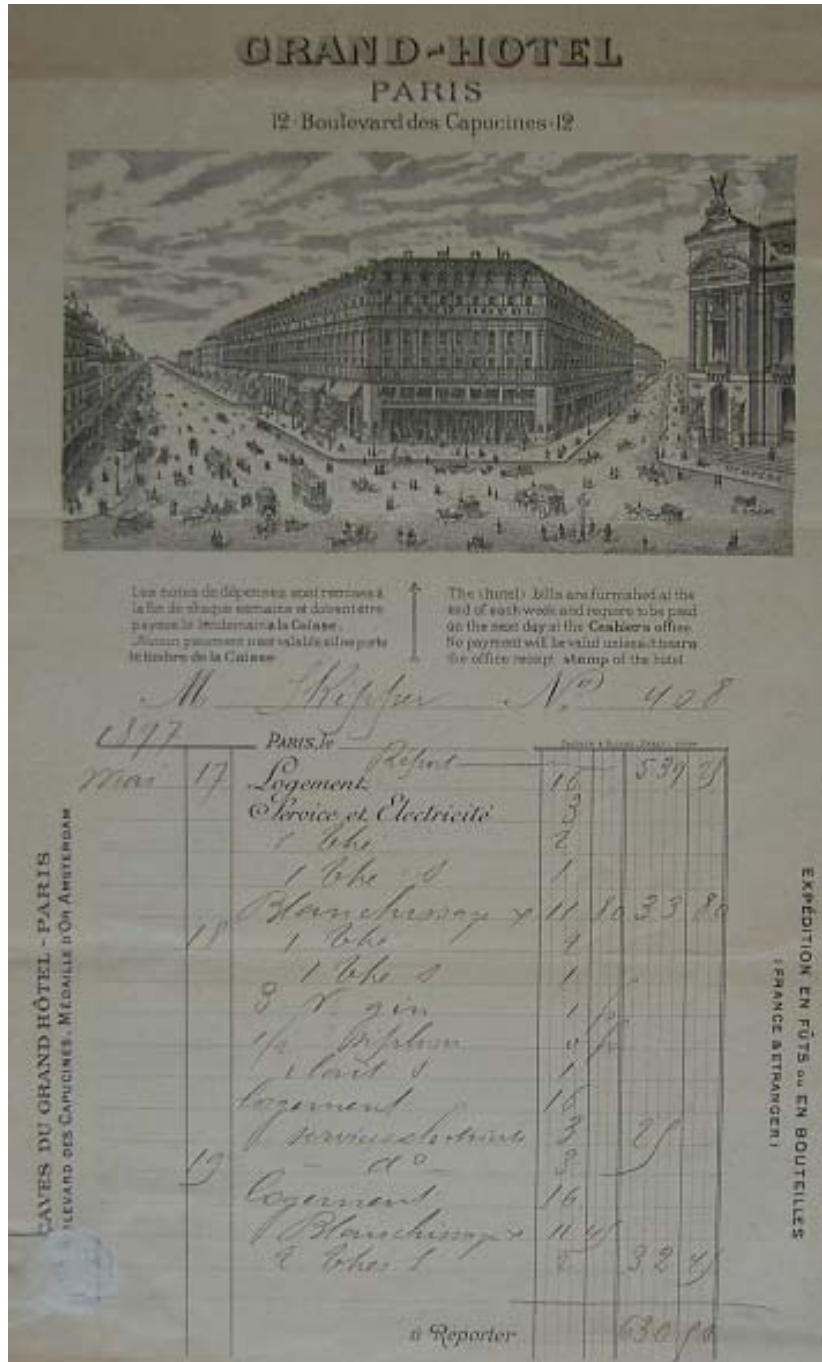 GRAND-HOTEL
PARIS
12·Boulevard des Capucines·12
GRAND HOTEL
Les notes de dépenses sont remises à
la fin de chaque semaine et doivent être
payées le lendemain à la Caisse.
Aucun paiement n'est valable s'il ne porte
le timbre de la Caisse
The (hotel) bills are furnished at the
end of each week and require to be paid
on the next day at the Cashiers office
No payment will be valid unless it bears
the office receipt stamp of the hotel
M Skipper No 408
1897 PARIS, le
Report 539 25
Mai 17 Logement 16
Service et Electricité 3
1 thé 2
1 thé s 1
Blanchissage x 11 80 33 80
18 1 thé 2
1 thé s 1
3 V. gin 1 50
1/2 Siphon 0 50
1 lait s 1
Logement 16
service electricité 3 25
19 do 3
Logement 16
Blanchissage x 11 45
2 thés s 2 32 45
à Reporter 630 50
CAVES DU GRAND HÔTEL - PARIS
BOULEVARD DES CAPUCINES. MÉDAILLE D'OR AMSTERDAM
EXPÉDITION EN FÛTS OU EN BOUTEILLES
(FRANCE & ETRANGER)